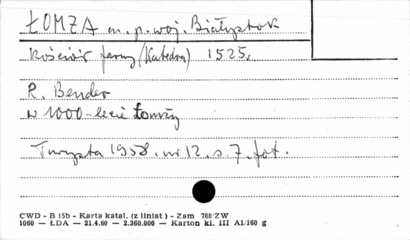 ŁOMZA m. p. woj. Białystok
Kościół farny (Katedra) 1525.
R. Bender
W 1000-lecie Łomży
Turysta 1958. nr 12. s. 7. fot.
CWD - B 15b - Karta katal. (z liniat) - Zam 788/ZW
1060 — ŁDA — 21.4.60 — 2.360.000 — Karton kl. III A1/160 g